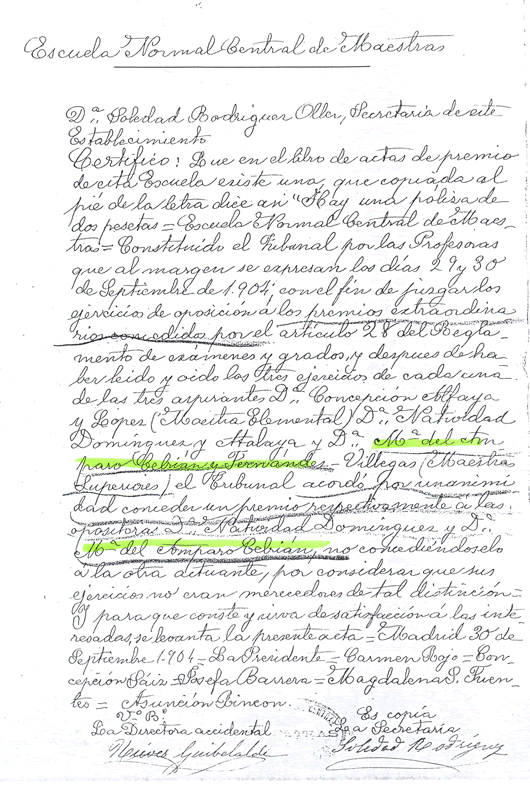 Escuela Normal Central de Maestras
D.ª Soledad Rodriguez Oller, Secretaria de este
Establecimiento
Certifico: Que en el libro de actas de premio
de esta Escuela existe una, que copiada al
pié de la letra dice asi "Hay una póliza de
dos pesetas = Escuela Normal Central de Maes-
tras = Constituido el Tribunal por las Profesoras
que al margen se expresan los días 29 y 30
de Septiembre de 1.904; con el fin de juzgar los
ejercicios de oposición a los premios extraordina
rios concedidos por el artículo 28 del Regla
mento de exámenes y grados, y despues de ha-
ber leido y oido los tres ejercicios de cada una
de las tres aspirantes D.ª Concepción Alfaya
y Lopez (Maestra Elemental) D.ª Natividad
Domínguez y Atalaya y D.ª Mª del Am
paro Cebrián y Fernández - Villegas (Maestras
Superiores) el Tribunal acordó por unanimi
dad conceder un premio respectivamente a las
opositoras D.ª Natividad Domínguez y D.ª
Mª del Amparo Cebián, no concediéndoselo
á la otra actuante, por considerar que sus
ejercicios no eran merecedores de tal distinción=
Y para que conste y sirva de satisfacción á las inte-
resadas, se levanta la presente acta = Madrid 30 de
Septiembre 1.904 = La Presidente = Carmen Rojo = Con-
cepción Sáiz = Josefa Barrera = Magdalena S. Fuen-
tes = Asunción Rincon.
Vº Bº
Es copia
La Directora accidental
La Secretaria
Nieves Guibelalde
Soledad Rodriguez